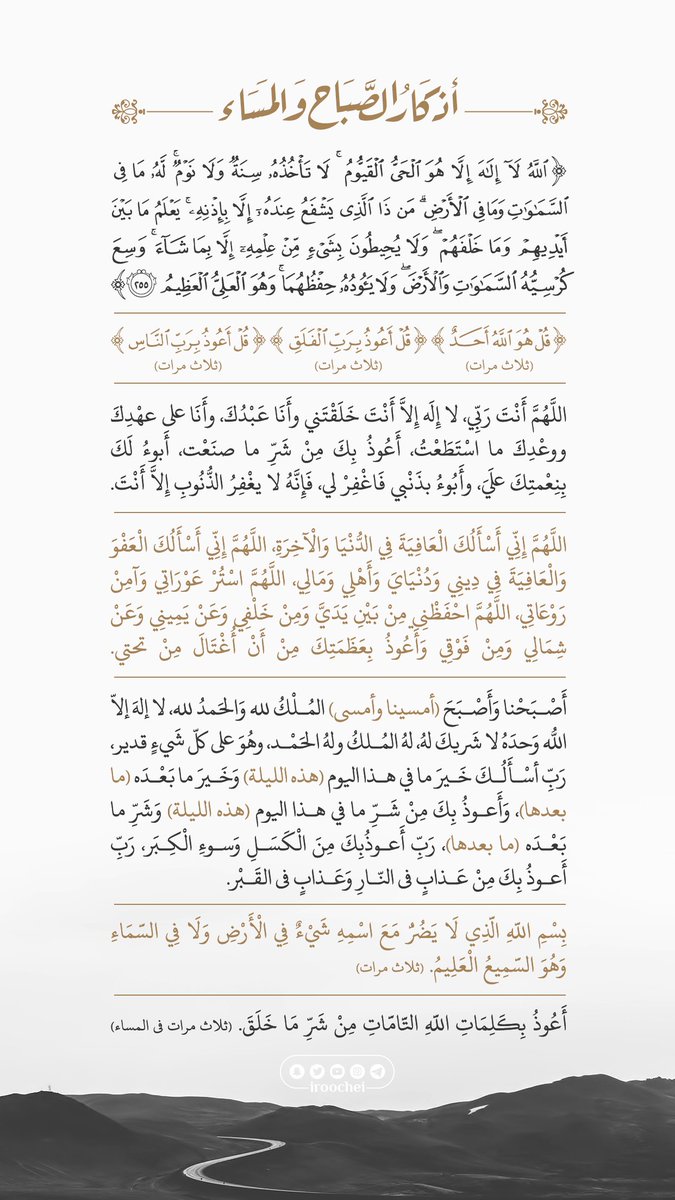 أذكَارُ الصَّبَاحِ وَالمَسَاء
﴿ ٱللَّهُ لَآ إِلَٰهَ إِلَّا هُوَ ٱلْحَىُّ ٱلْقَيُّومُ ۚ لَا تَأْخُذُهُۥ سِنَةٌ وَلَا نَوْمٌ ۚ لَّهُۥ مَا فِى
ٱلسَّمَٰوَٰتِ وَمَا فِى ٱلْأَرْضِ ۗ مَن ذَا ٱلَّذِى يَشْفَعُ عِندَهُۥٓ إِلَّا بِإِذْنِهِۦ ۚ يَعْلَمُ مَا بَيْنَ
أَيْدِيهِمْ وَمَا خَلْفَهُمْ ۖ وَلَا يُحِيطُونَ بِشَىْءٍ مِّنْ عِلْمِهِۦٓ إِلَّا بِمَا شَآءَ ۚ وَسِعَ
كُرْسِيُّهُ ٱلسَّمَٰوَٰتِ وَٱلْأَرْضَ ۖ وَلَا يَـُٔودُهُۥ حِفْظُهُمَا ۚ وَهُوَ ٱلْعَلِىُّ ٱلْعَظِيمُ ٢٥٥ ﴾
﴿ قُلْ هُوَ ٱللَّهُ أَحَدٌ ﴾ ﴿ قُلْ أَعُوذُ بِرَبِّ ٱلْفَلَقِ ﴾ ﴿ قُلْ أَعُوذُ بِرَبِّ ٱلنَّاسِ ﴾
(ثلاث مرات) (ثلاث مرات) (ثلاث مرات)
اللَّهُمَّ أَنْتَ رَبِّي، لا إِلَه إِلاَّ أَنْتَ خَلَقْتَني وأَنَا عَبْدُكَ، وأَنَا على عهْدِكَ
ووعْدِكَ ما اسْتَطَعْتُ، أَعُوذُ بِكَ مِنْ شَرِّ ما صنَعْت، أَبوءُ لَكَ
بِنِعْمتِكَ علَيَ، وأَبُوءُ بذَنْبي فَاغْفِرْ لي، فَإِنَّهُ لا يغْفِرُ الذُّنُوبِ إِلاَّ أَنْتَ.
اللَّهُمَّ إِنِّي أَسْأَلُكَ الْعَافِيَةَ فِي الدُّنْيَا وَالْآخِرَةِ، اللَّهُمَّ إِنِّي أَسْأَلُكَ الْعَفْوَ
وَالْعَافِيَةَ فِي دِينِي وَدُنْيَايَ وَأَهْلِي وَمَالِي، اللَّهُمَّ اسْتُرْ عَوْرَاتِي وَآمِنْ
رَوْعَاتِي، اللَّهُمَّ احْفَظْنِي مِنْ بَيْنِ يَدَيَّ وَمِنْ خَلْفِي وَعَنْ يَمِينِي وَعَنْ
شِمَالِي وَمِنْ فَوْقِي وَأَعُوذُ بِعَظَمَتِكَ مِنْ أَنْ أُغْتَالَ مِنْ تحتي.
أَصْبَحْنا وَأَصْبَحَ (أمسينا وأمسى) المُـلْكُ لله وَالحَمدُ لله، لا إلهَ إلاّ
اللّه وَحدَهُ لا شريكَ لهُ، لهُ المُـلكُ ولهُ الحَمْـد، وهُوَ على كلّ شَيءٍ قدير،
رَبِّ أسْـأَلُـكَ خَـيرَ ما في هـذا اليوم (هذه الليلة) وَخَـيرَ ما بَعْـدَه (ما
بعدها)، وَأَعـوذُ بِكَ مِنْ شَـرِّ ما في هـذا اليوم (هذه الليلة) وَشَرِّ ما
بَعْـدَه (ما بعدها)، رَبِّ أَعـوذُبِكَ مِنَ الْكَسَـلِ وَسـوءِ الْكِـبَر، رَبِّ
أَعـوذُ بِكَ مِنْ عَـذابٍ في النّـارِ وَعَـذابٍ في القَـبْر.
بِسْمِ اللهِ الَّذِي لَا يَضُرُّ مَعَ اسْمِهِ شَيْءٌ فِي الْأَرْضِ وَلَا فِي السَّمَاءِ
وَهُوَ السَّمِيعُ الْعَلِيمُ. (ثلاث مرات)
أَعُوذُ بِكَلِمَاتِ اللهِ التَّامَّاتِ مِنْ شَرِّ مَا خَلَقَ. (ثلاث مرات في المساء)
iroochei